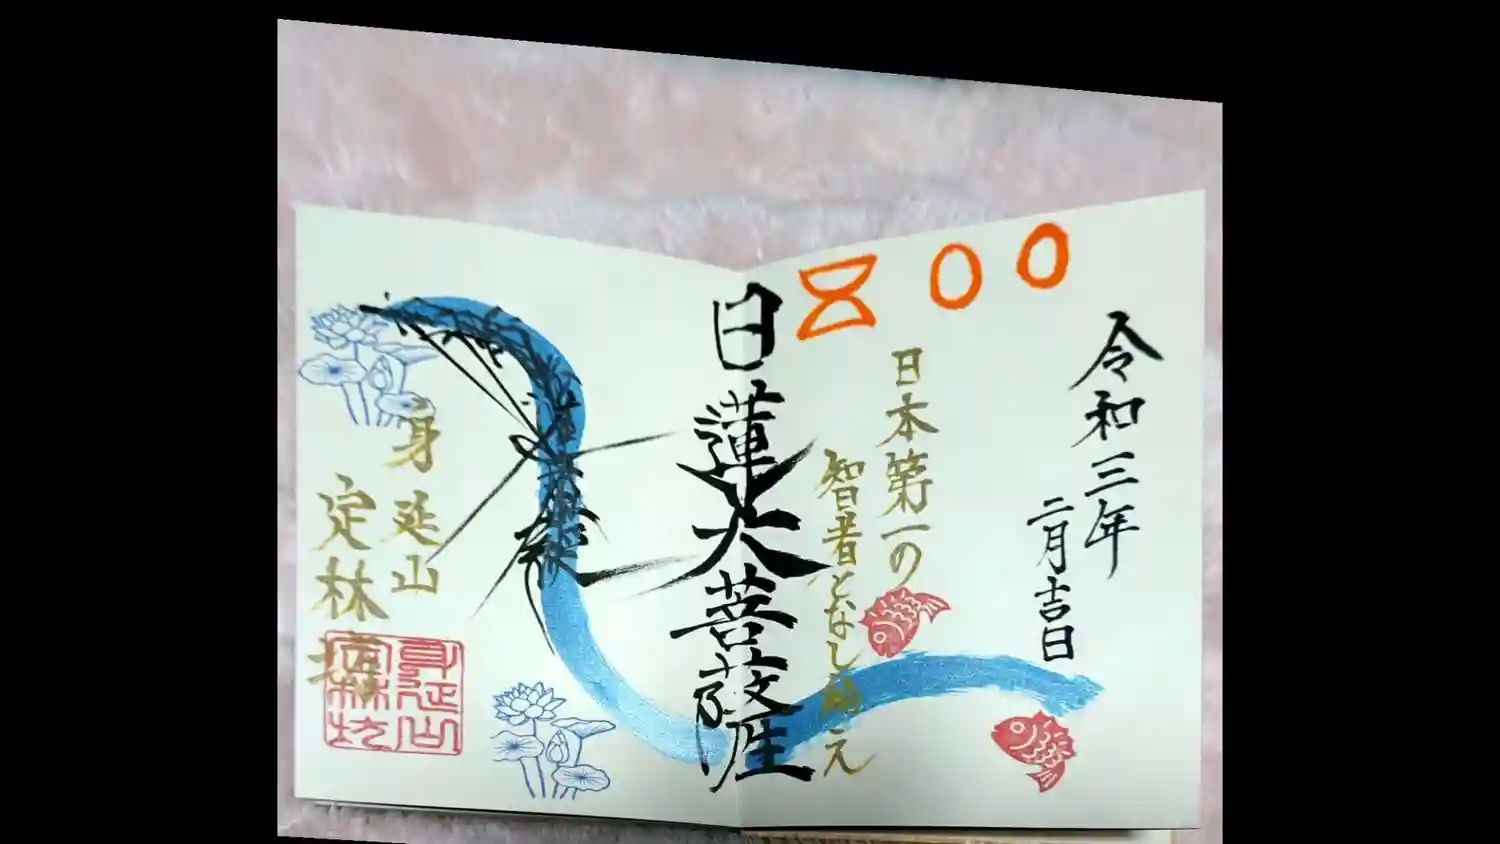 令和三年
二月吉日
日本第一の
智者となし給え
日蓮大菩薩
身延山
定林坊
身延山
定林坊